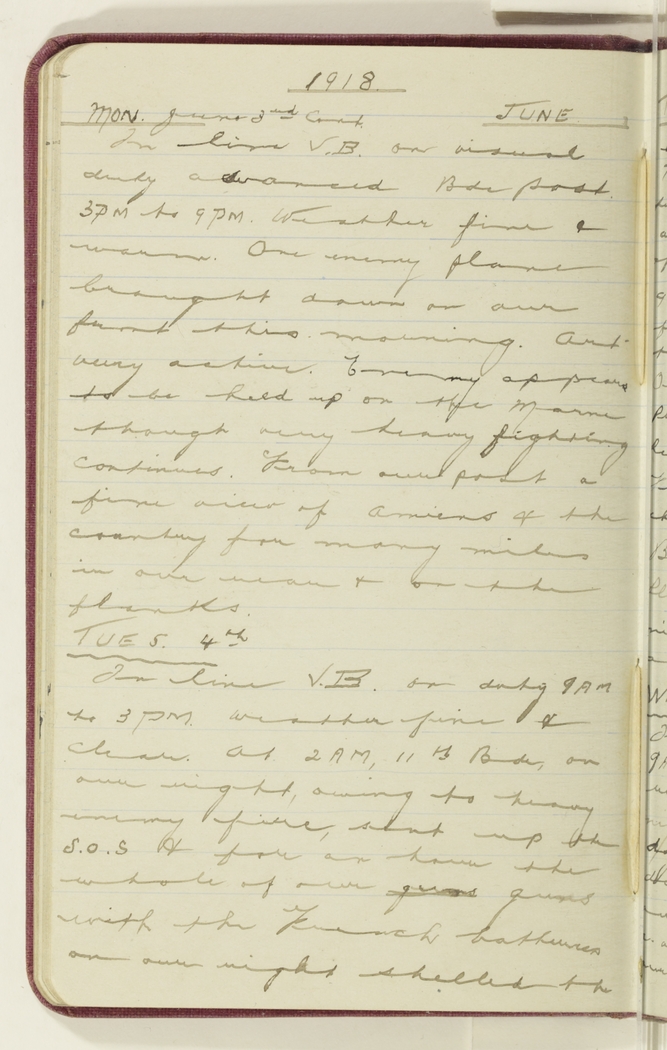 1918
MON. June 3rd Cont. JUNE
In line V.B. on visual
duty advanced Bde post.
3PM to 9PM. Weather fine &
warm. One enemy plane
brought down on our
front this mourning. Art
very active. Enemy appears
to be held up on the Marne
though very heavy fighting
continues. From our post a
fine view of Amiens & the
country for many miles
in our rear & on the
flanks.
TUES. 4th
In line V.B. on duty 9AM
to 3PM. Weather fine &
clear. At 2AM, 11th Bde, on
our right, owing to heavy
enemy fire, sent up the
S.O.S & for an hour the
whole of our guns guns
with the French batteries
on our right shelled the